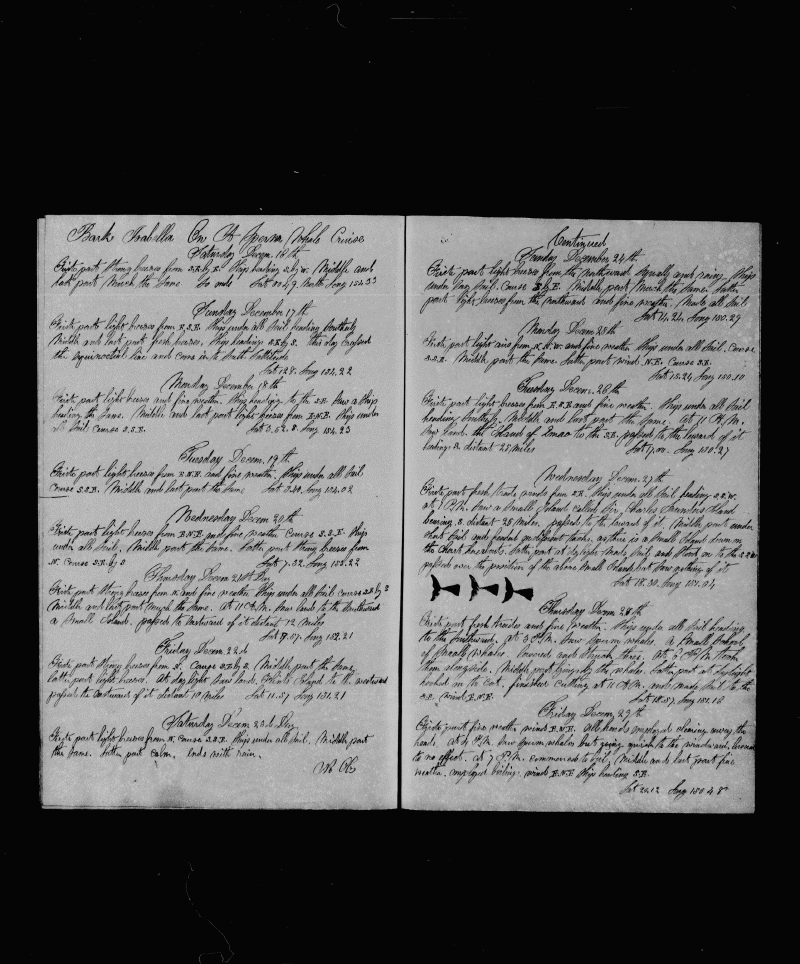 Bark Isabella On A Sperm Whale Cruise
Saturday Decem. 16th
Firste part strong breezes from S.E. by E. Ships heading S. by W. Middle and
last part Much the Same. So ends Lat 00.49 North Long 154.33
Sunday December 17th
Firste parts light breezes from E.S.E. Ships under all Sail heading Southerly
Middle and last part fresh breezes. Ships heading S.E. by S. This day Crossed
the Equinoctial line and Come in to South Lattitude
Lat 1.27. Long 154.22
Monday December 18th
Firste part light breezes and fine weather. Ships heading to the S.E. Saw a Ship
heading the Same. Middle and last part light breezes from E.N.E. Ships under
all Sail Course S.S.E. Lat 3.52. S. Long 154.23
Tuesday Decem. 19th
Firste part light breezes from E.N.E. and fine weather. Ships under all Sail
Course S.S.E. Middle and last part the Same Lat Long 154.02
Wednesday Decem 20th
Firste part light breezes from E.N.E. and fine weather Course S.S.E. Ships
under all Sail. Middle part the Same. Latter part Strong breezes from
N. Course S.E. by S Lat 7.32. Long 153.22
Thursday Decem 21st Day
Firste part Strong breezes from N. and fine weather Ships under all Sail Course S.E. by S
Middle and last part Much the Same. At 11 A.M. Saw land to the Southward
a Small Island. passed to eastward of it distant 12 Miles
Lat 9.57. Long 152.21
Friday Decem 22d
Firste part Strong breezes from N. Course S.E. by S. Middle part the Same
Latter part light breezes. At day light Saw land, Island to the westward
passed the eastward of it distant 10 Miles Lat 11.37 Long 151.21
Saturday Decem 23d Day
Firste part light breezes from N. Course S.S.E. Ships under all Sail. Middle part
the Same. Latter part Calm. Ends with rain.
No Ob
Continued
Sunday December 24th
Firste part light breezes from the northward Squally and rainy. Ships
under Sail. Course S. by E. Middle part Much the Same. Latter
part light breezes from the northward and fine weather. Made all Sail
Lat 14.24. Long 150.29
Monday Decem 25th
Firste part light airs from N.N.W. and fine weather. Ships under all Sail. Course
S.S.E. Middle part the Same Latter part wind N.E. Course S.E.
Lat 15.24 Long 150.10
Tuesday Decem. 26th
Firste part light breezes from E.S.E and fine weather. Ships under all Sail
heading Southerly. Middle and last part the Same. At 11 A.M.
Saw land. the Island of Emao to the S.E. passed to the leward of it
bearing E. distant 25 Miles Lat 17.00. Long 150.27
Wednesday Decem. 27th
Firste part fresh trade winds from S.E. Ships under all Sail heading S.S.W.
at 1 P.M. Saw a Small Island called Sir Charles Saunders Island
bearing E. distant 25 Miles. passed to the leward of it. Middle part under
Short Sail and as there is a Small Island down on
the Chart hereabouts. Latter part at daylight Made Sail and Stood on to the S.S.W.
passed over the position of the above Small Island but Saw nothing of it
Lat 18.30. Long 151.24
Thursday Decem 28th
Firste part fresh trades and fine weather. Ships under all Sail heading
to the Southward. At 3 P.M. Saw Sperm whales. A Small breed
of Small whales. lowered and Struck three. At P.M. took
them alongside. Middle part lying by the whales. Latter part at daylight
hooked on to Cut. finished Cutting at 11 A.M. and made Sail to the
S.E. Wind E.N.E. Lat 18.57. Long 151.18
Friday Decem. 29th
Firste parts fine weather wind E.N.E. All hands employed cleaning away the
heads. At 4 P.M. Saw Sperm whales but going quick to the windward. lowered
to no effect. At 7 P.M. Commenced to boil. Middle and last part fine
weather. employed boiling. wind E.N.E. Ships heading S.E.
Lat 20.12 Long 150.48